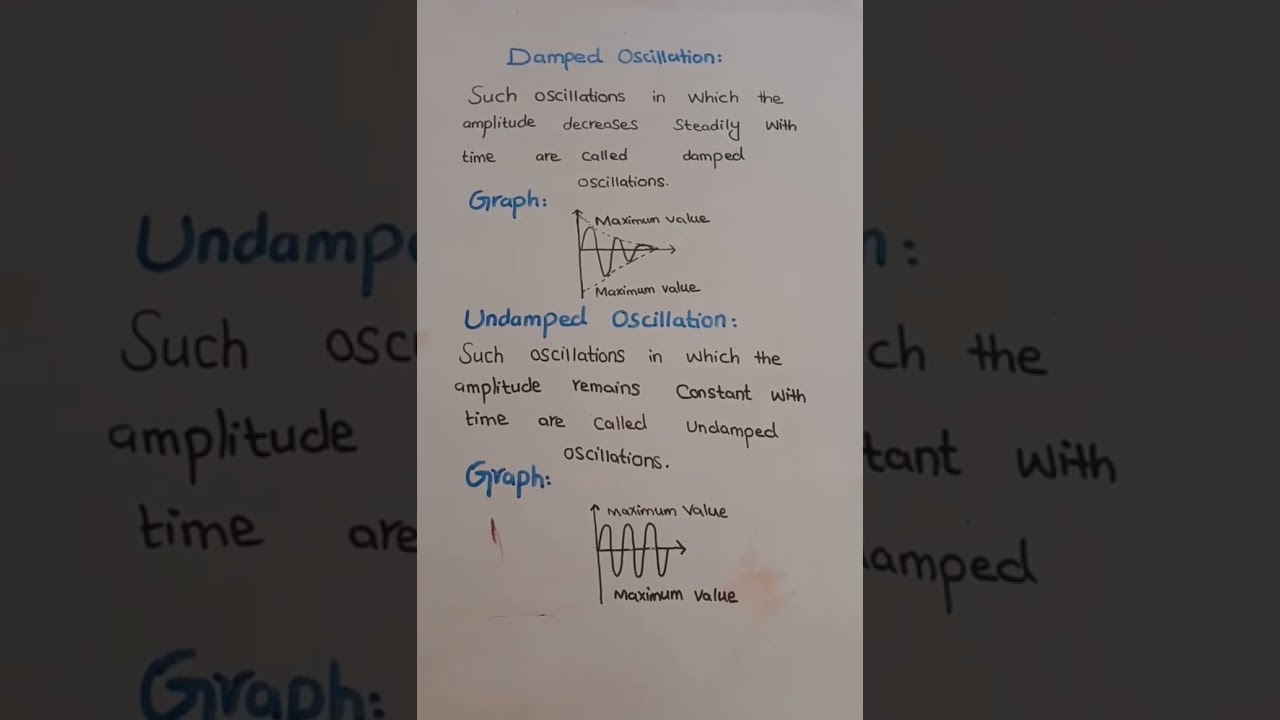 Damped Oscillation:
Such oscillations in which the
amplitude decreases steadily with
time are called damped
oscillations.
Graph:
Maximum value
Maximum value
Undamped Oscillation:
Such oscillations in which the
amplitude remains Constant with
time are called Undamped
oscillations.
Graph:
Maximum Value
Maximum Value